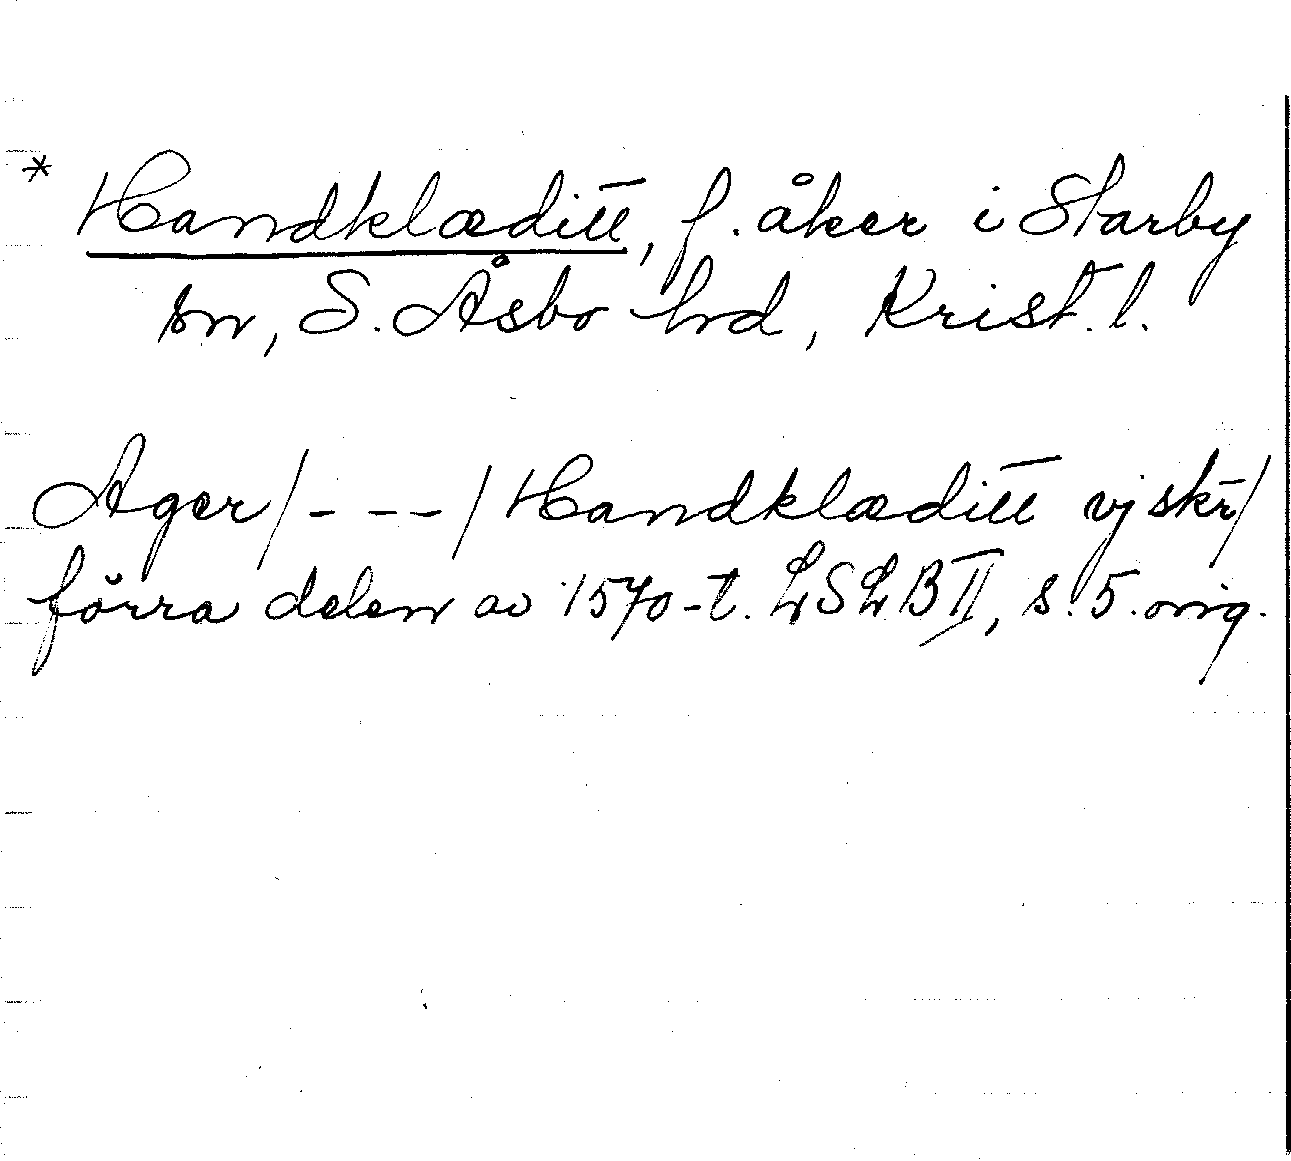 * Handklæditt, f. åker i Starby
sn, S. Åsbo hd, Krist. l.
Ager/---/Handklæditt vj skr̄/
förra delen av 1570-t. LSLB II, s. 5. orig.